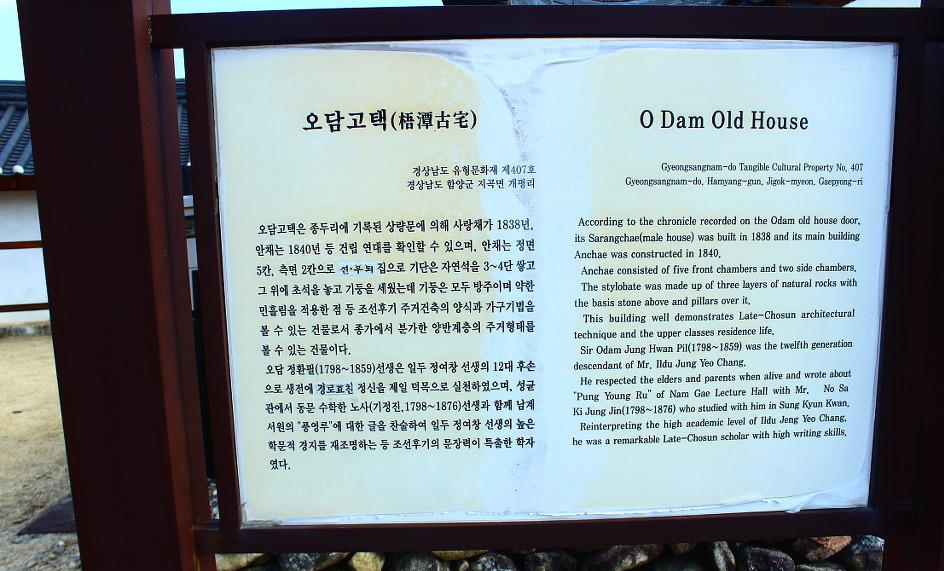 오담고택(梧潭古宅)
경상남도 유형문화재 제407호
경상남도 함양군 지곡면 개평리
오담고택은 종두리에 기록된 상량문에 의해 사랑채가 1838년,
안채는 1840년 등 건립 연대를 확인할 수 있으며, 안채는 정면
5칸, 측면 2칸으로 전·후퇴 집으로 기단은 자연석을 3~4단 쌓고
그 위에 초석을 놓고 기둥을 세웠는데 기둥은 모두 방주이며 약한
민흘림을 적용한 점 등 조선후기 주거건축의 양식과 가구기법을
볼 수 있는 건물로서 종가에서 분가한 양반계층의 주거형태를
볼 수 있는 건물이다.
오담 정환필(1798~1859)선생은 일두 정여창 선생의 12대 후손
으로 생전에 경로효친 정신을 제일 덕목으로 실천하였으며, 성균
관에서 동문 수학한 노사(기정진,1798~1876)선생과 함께 남계
서원의 "풍영루"에 대한 글을 찬술하여 일두 정여창 선생의 높은
학문적 경지를 재조명하는 등 조선후기의 문장력이 특출한 학자
였다.
O Dam Old House
Gyeongsangnam-do Tangible Cultural Property No. 407
Gyeongsangnam-do, Hamyang-gun, Jigok-myeon, Gaepyong-ri
According to the chronicle recorded on the Odam old house door,
its Sarangchae(male house) was built in 1838 and its main building
Anchae was constructed in 1840.
Anchae consisted of five front chambers and two side chambers.
The stylobate was made up of three layers of natural rocks with
the basis stone above and pillars over it.
This building well demonstrates Late-Chosun architectural
technique and the upper classes residence life.
Sir Odam Jung Hwan Pil(1798~1859) was the twelfth generation
descendant of Mr. Ildu Jung Yeo Chang.
He respected the elders and parents when alive and wrote about
"Pung Young Ru" of Nam Gae Lecture Hall with Mr. No Sa
Ki Jung Jin(1798~1876) who studied with him in Sung Kyun Kwan.
Reinterpreting the high academic level of Ildu Jeng Yeo Chang,
he was a remarkable Late-Chosun scholar with high writing skills.